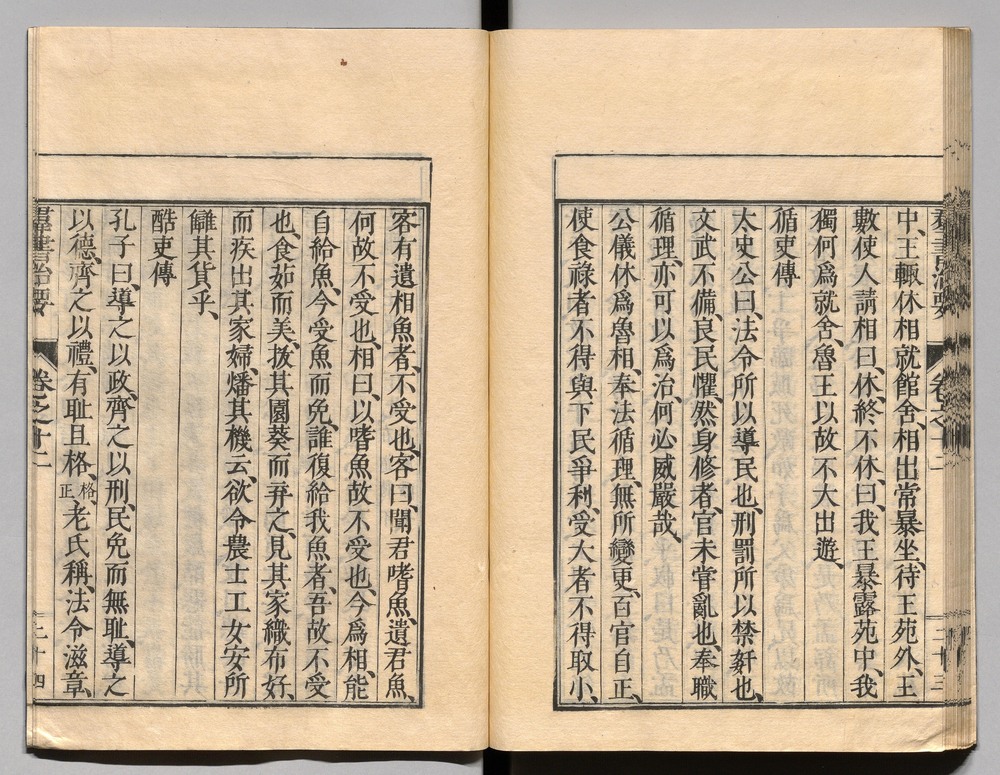 中、王輙休相就館舍、相出常暴坐、待王苑外、王
數使人請相曰、休、終不休、曰、我王暴露苑中、我
獨何爲就舍、魯王以故不大出遊、
循吏傳
太史公曰、法令所以導民也、刑罰所以禁姧也、
文武不備、良民懼、然身修者、官未甞亂也、奉職
循理、亦可以爲治、何必威嚴哉、
公儀休爲魯相、奉法循理、無所變更、百官自正、
使食祿者不得與下民爭利、受大者不得取小、
客有遺相魚者、不受也、客曰、聞君嗜魚、遺君魚、
何故不受也、相曰、以嗜魚故不受也、今爲相、能
自給魚、今受魚而免、誰復給我魚者、吾故不受
也、食茹而美、拔其園葵而弃之、見其家織布好、
而疾出其家婦、燔其機云、欲令農士工女安所
讎其貨乎、
酷吏傳
孔子曰、導之以政、齊之以刑、民免而無耻、導之
以德、齊之以禮、有耻且格、格正、老氏稱、法令滋章、
羣書治要 卷之十二 二十四